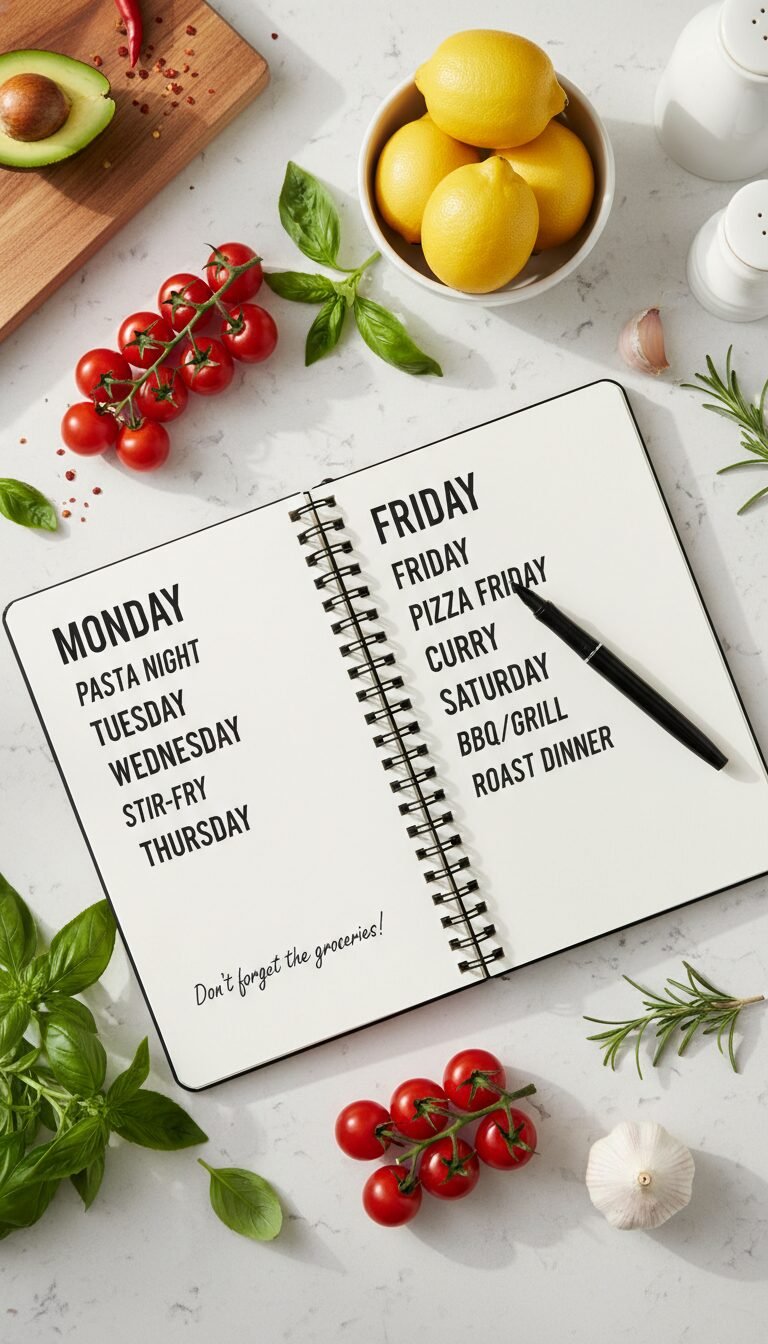 MONDAY
PASTA NIGHT
TUESDAY
WEDNESDAY
STIR-FRY
THURSDAY
Don't forget the groceries!
FRIDAY
FRIDAY
PIZZA FRIDAY
CURRY
SATURDAY
BBQ/GRILL
ROAST DINNER